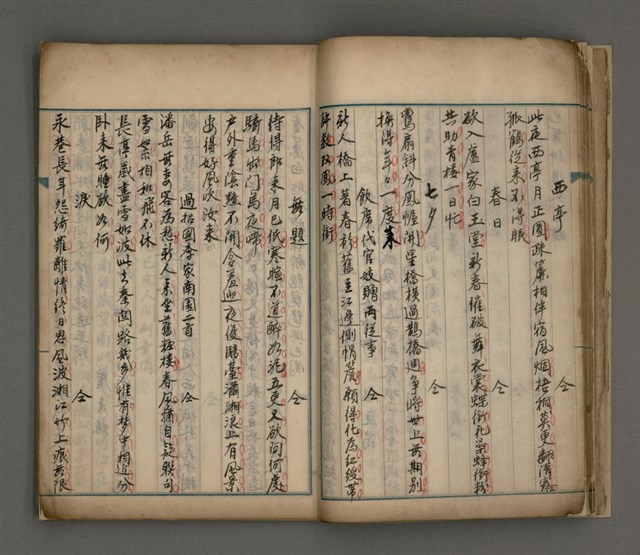 西亭　仝
此夜西亭月正圓疎簾相伴宿風烟梧桐莫更翻清露
孤鶴從来不得眠
春日　仝
欲入盧家白玉堂新春催破舞衣裳蝶銜花蕊蜂銜粉
共助青楼一日忙
七夕　仝
鸞扇斜分鳳幄開星橋橫過鵲橋迴争将世上無期別
換得年〻一度来
飲席代官妓贈两從事
新人橋上著春衫舊主江邊側帽簷願得化為紅綬帶
許教双鳳一時銜
無題　仝
待得郎来月已低寒暄不道醉如泥五更又欲向何處
騎馬出门烏夜啼
户外重陰黯不開含羞迎夜復臨臺瀟湘浪上有風景
安得好風吹汝来
過招國李家南園二首　仝
潘岳無妻客為愁新人来坐舊粧楼春風痛自疑聯句
雪絮相和飛不休
長亭歲盡雪如波此去秦関路幾多惟有夢中相近分
卧来無睡欲如何
淚　仝
永巷長年怨綺羅離情終日思風波湘江竹上痕無限